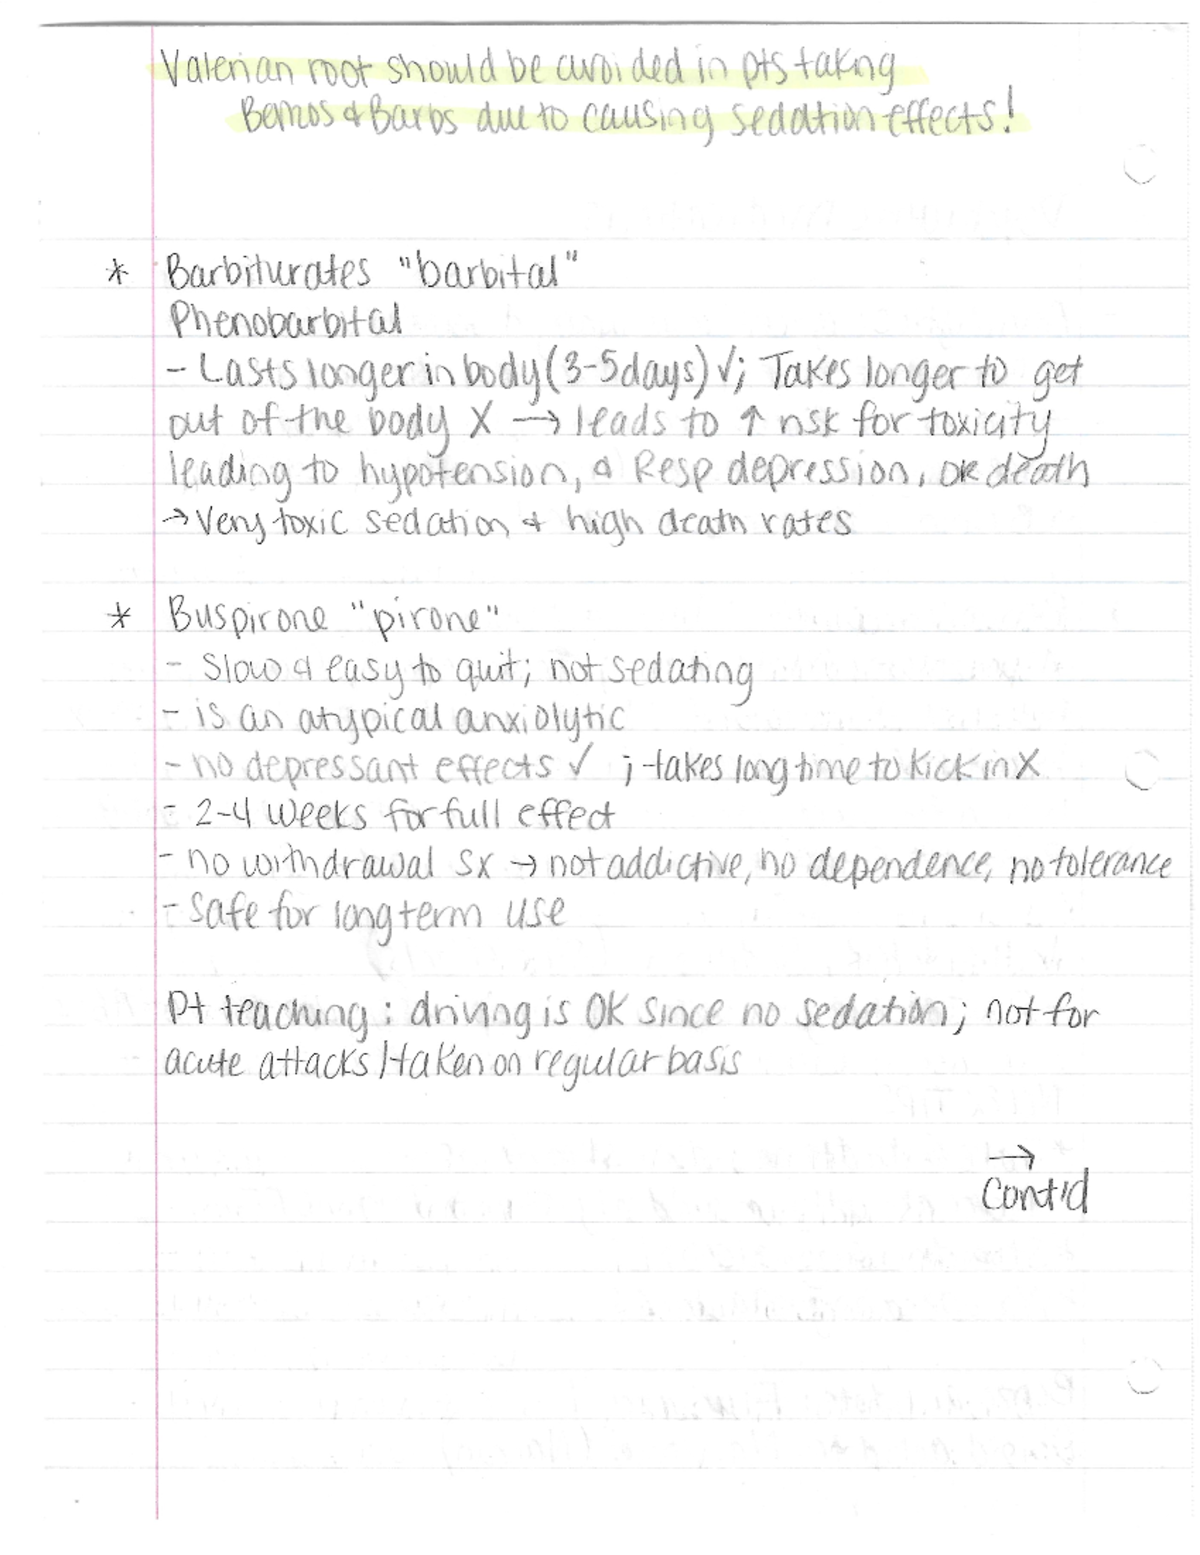 Valerian root should be avoided in pts taking
Benzos & Barbs due to causing sedation effects!
* Barbiturates "barbital"
Phenobarbital
- Lasts longer in body (3-5 days) ✓; Takes longer to get
out of the body X → leads to ↑ risk for toxicity
leading to hypotension, & Resp depression, or death
→ Very toxic sedation & high death rates
* Buspirone "pirone"
- Slow & easy to quit; not sedating
- is an atypical anxiolytic
- no depressant effects ✓ ; takes long time to kick in X
- 2-4 weeks for full effect
- no withdrawal sx → not addictive, no dependence, no tolerance
- Safe for long term use
Pt teaching: driving is OK since no sedation; not for
acute attacks / taken on regular basis
→
Cont'd